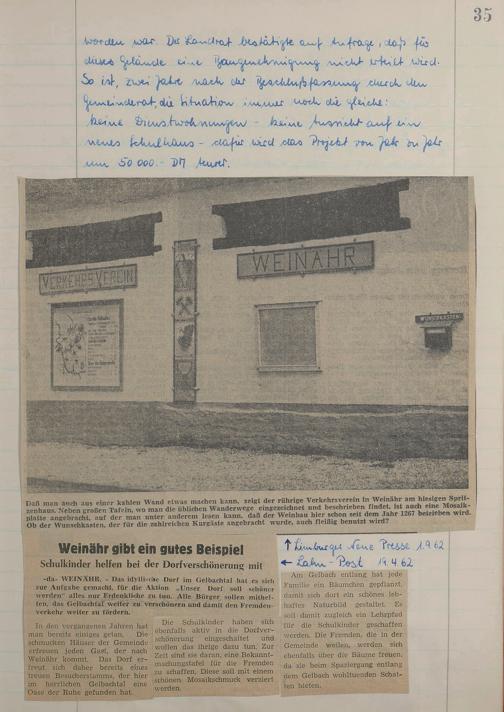 35
worden war. Der Landrat bestätigte auf Anfrage, daß für
dieses Gelände eine Baugenehmigung nicht erteilt wird.
So ist, zwei Jahre nach der Beschlußfassung durch den
Gemeinderat, die Situation immer noch die gleiche:
keine Dienstwohnungen - keine Aussicht auf ein
neues Schulhaus - dafür wird das Projekt von Jahr zu Jahr
um 50 000.- DM teurer.
VERKEHRSVEREIN
WEINAHR
WUNSCHKASTEN
Daß man auch aus einer kahlen Wand etwas machen kann, zeigt der rührige Verkehrsverein in Weinähr am hiesigen Sprit-
zenhaus. Neben großen Tafeln, wo man die üblichen Wanderwege eingezeichnet und beschrieben findet, ist auch eine Mosaik-
platte angebracht, auf der man unter anderem lesen kann, daß der Weinbau hier schon seit dem Jahr 1267 betrieben wird.
Ob der Wunschkasten, der für die zahlreichen Kurgäste angebracht wurde, auch fleißig benutzt wird?
Weinähr gibt ein gutes Beispiel
Schulkinder helfen bei der Dorfverschönerung mit
-da- WEINÄHR. - Das idyllische Dorf im Gelbachtal hat es sich
zur Aufgabe gemacht, für die Aktion „Unser Dorf soll schöner
werden" alles nur Erdenkliche zu tun. Alle Bürger sollen mithel-
fen, das Gelbachtal weiter zu verschönern und damit den Fremden-
verkehr weiter zu fördern.
In den vergangenen Jahren hat
man bereits einiges getan. Die
schmucken Häuser der Gemeinde
erfreuen jeden Gast, der nach
Weinähr kommt. Das Dorf er-
freut sich daher bereits eines
treuen Besucherstamms, der hier
im herrlichen Gelbachtal eine
Oase der Ruhe gefunden hat.
Die Schulkinder haben sich
ebenfalls aktiv in die Dorfver-
schönerung eingeschaltet und
wollen das ihrige dazu tun. Zur
Zeit sind sie daran, eine Bekannt-
machungstafel für die Fremden
zu schaffen. Diese soll mit einem
schönen Mosaikschmuck verziert
werden.
↑ Limburger Neue Presse 1.9.62
← Lahn-Post 19.4.62
Am Gelbach entlang hat jede
Familie ein Bäumchen gepflanzt,
damit sich dort ein schönes leb-
haftes Naturbild gestaltet. Es
soll damit zugleich ein Lehrpfad
für die Schulkinder geschaffen
werden. Die Fremden, die in der
Gemeinde weilen, werden sich
ebenfalls über die Bäume freuen,
da sie beim Spaziergang entlang
dem Gelbach wohltuenden Schat-
ten bieten.